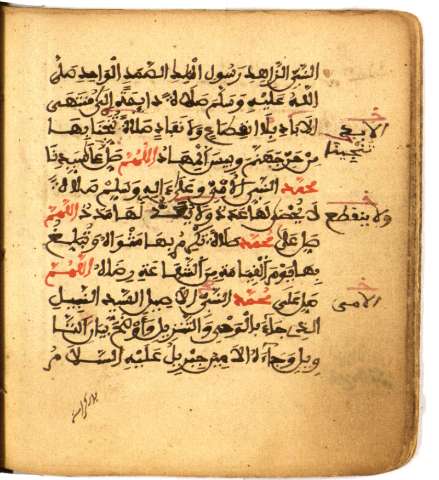 النبي الزاهد رسول الملك الصمد الواحد صلى
الله عليه وسلم صلاة دايمة الى منتهى
الاباد بلا انقطاع ولا نفاد صلاة تنجنا بها
من حر جهنم وبيس المهاد اللهم صل على سيدنا
محمد النبي الامي وعلى اله وسلم صلاة
لا يحصى لها عدد ولا يعد لها مدد اللهم
صل على محمد صلاة تكرم بها مثواه وتبلغ
بها يوم القيامة من الشفاعة رضاه اللهم
صل على محمد النبي الاصيل السيد النبيل
الذي جاء بالوحي والتنزيل واوضح بيان التا
ويل وجاءه الامين جبريل عليه السلام
الابد
تنجينا
ولا ينقطع
الامي